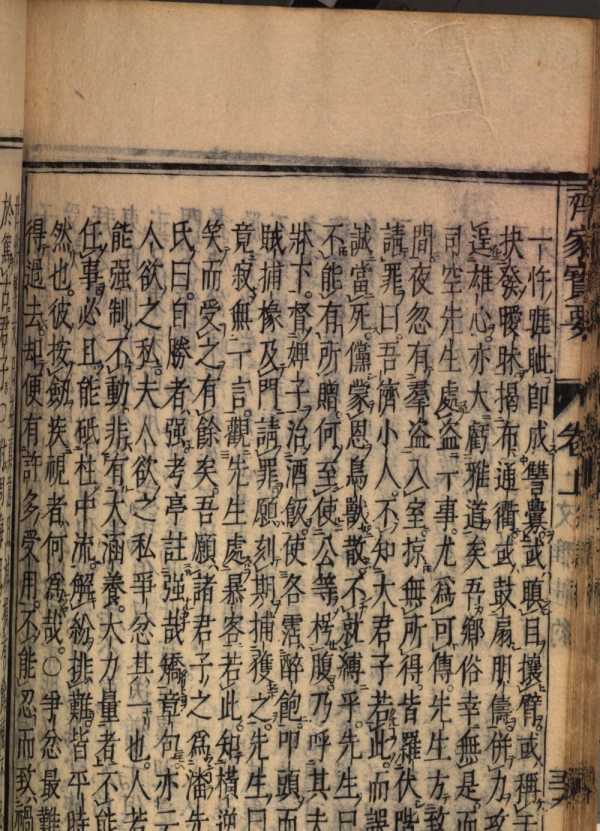 齊家寶要
卷上
一忤睚眦。即成讐釁。或瞋目攘臂。或稱干
抉發曖昧。揭布通衢。或鼓扇朋儔。併力攻
逞雄心。亦大虧雅道矣。吾鄉俗幸無是。而
司空先生處盜一事。尤爲可傳。先生方致
間夜忽有羣盜入室。掠無所得。皆羅伏階
請罪曰。吾儕小人。不知大君子若此。而誤
誠當死。儻蒙恩鳥獸散。不就縛乎。先生曰
不能有所贈。何至使公等枵腹。乃呼其夫
牀下。督婢子治酒飯。使各霑醉飽。叩頭而
賊捕椽及門請罪。願刻期捕獲之。先生曰
竟寂無一言。觀先生處暴客若此。知橫逆
笑而受之有餘矣。吾願諸君子之爲潘先
氏曰。自勝者强。考亭註强哉矯章句亦云
人欲之私。夫人欲之私爭忿其一也。人若
能强制不動。非有大涵養。大力量者不能
任事必且能砥柱中流。解紛排難。皆平時
然也。彼按劔疾視者。何爲哉。○爭忿最難
得過去。却便有許多受用。不能忍而致禍